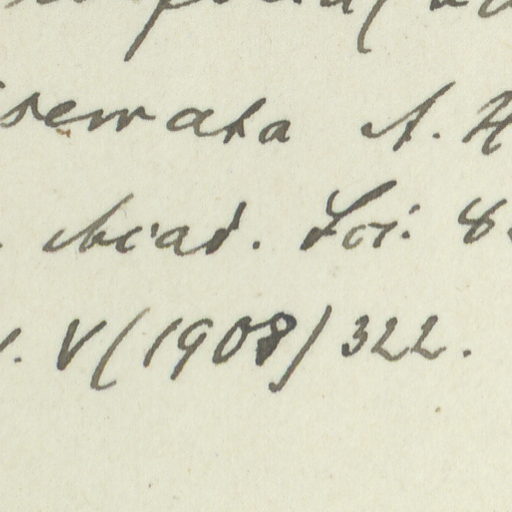 serrata A. H
Acad. Sci. 8
. V (1908) 322.